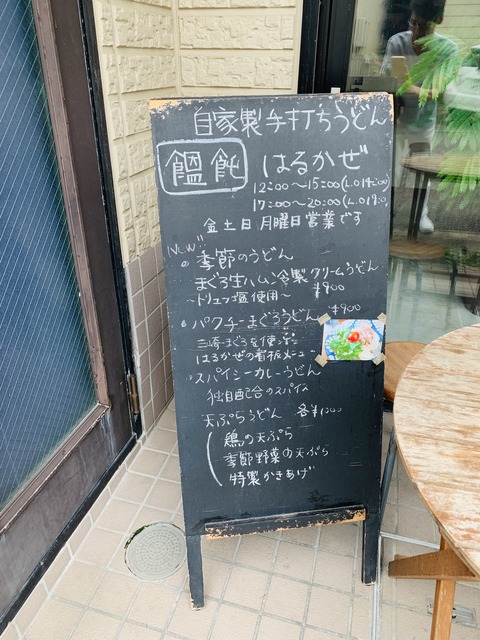 自家製手打ちうどん
饂飩 はるかぜ
12:00〜15:00(L.O14:00)
17:00〜20:00(L.O19:
金土日月曜日営業です
New!!
季節のうどん
まぐろ生ハム冷製クリームうどん
〜トリュフ塩使用〜 ¥900
パクチーまぐろうどん ¥900
三崎まぐろを使った
はるかぜの看板メニュー
スパイシーカレーうどん
独自配合のスパイス
天ぷらうどん 各¥1200
鶏の天ぷら
季節野菜の天ぷら
特製かきあげ